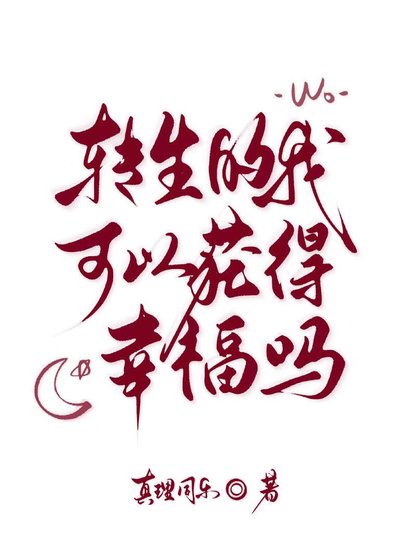 -Wo-
转生的我
可以获得
幸福吗
真理同乐◎著